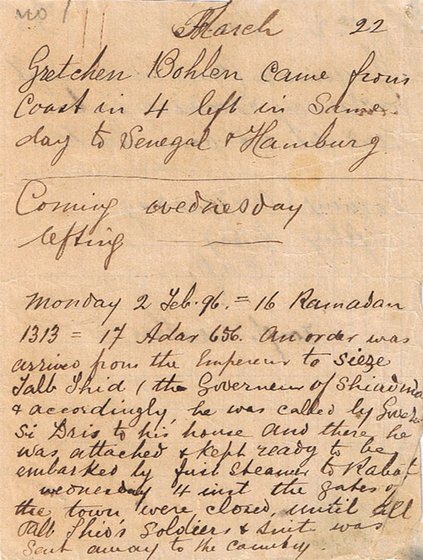 no 1
March 22
Gretchen Bohlen came from
Coast in 4 left in Same
day to Senegal & Hamburg
Coming wednesday
lefting
Monday 2 Feb. 96. = 16 Ramadan
1313 = 17 Adar 656. An order was
arrived from the Empereur to Sieze
Talb Shid ( the Governeur of Shiadma
& accordingly, he was called by
Si Dris to his house and there he
was attached & kept ready to be
embarked by first Steamer to Rabat
wednesday 4 inst the gates of
the town were closed, until all
Talb Shid's Soldiers & Suit was
Sent away to the country.